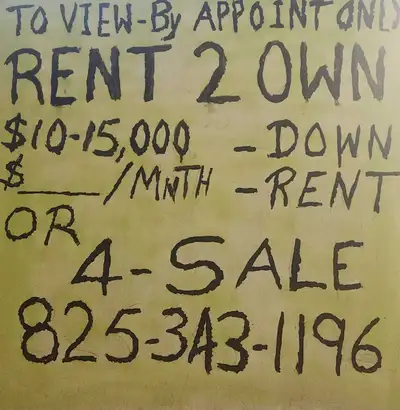 TO VIEW-By APPOINT ONLY
RENT 2 OWN
$10-15,000 - DOWN
$____/MNTH - RENT
OR
4-SALE
825-343-1196